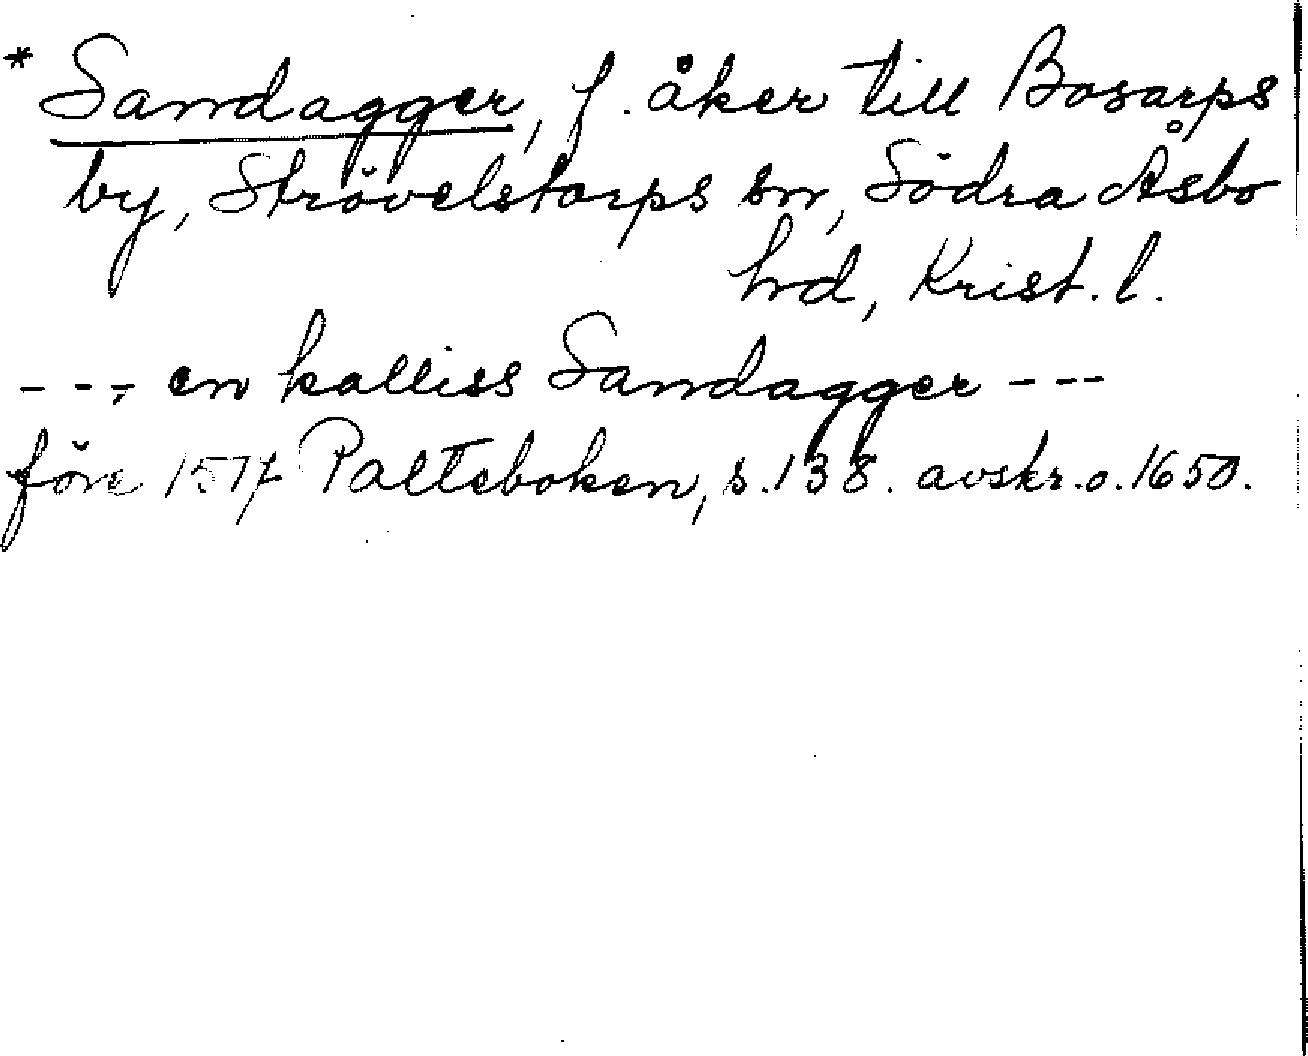 * Sandagger, f. åker till Bosarps
by, Strövelstorps sn, Södra Åsbo
hrd, Krist. l.
- - -, en kalliss Sandagger - - -
före 1574 Palteboken, s. 138. avskr. o. 1650.